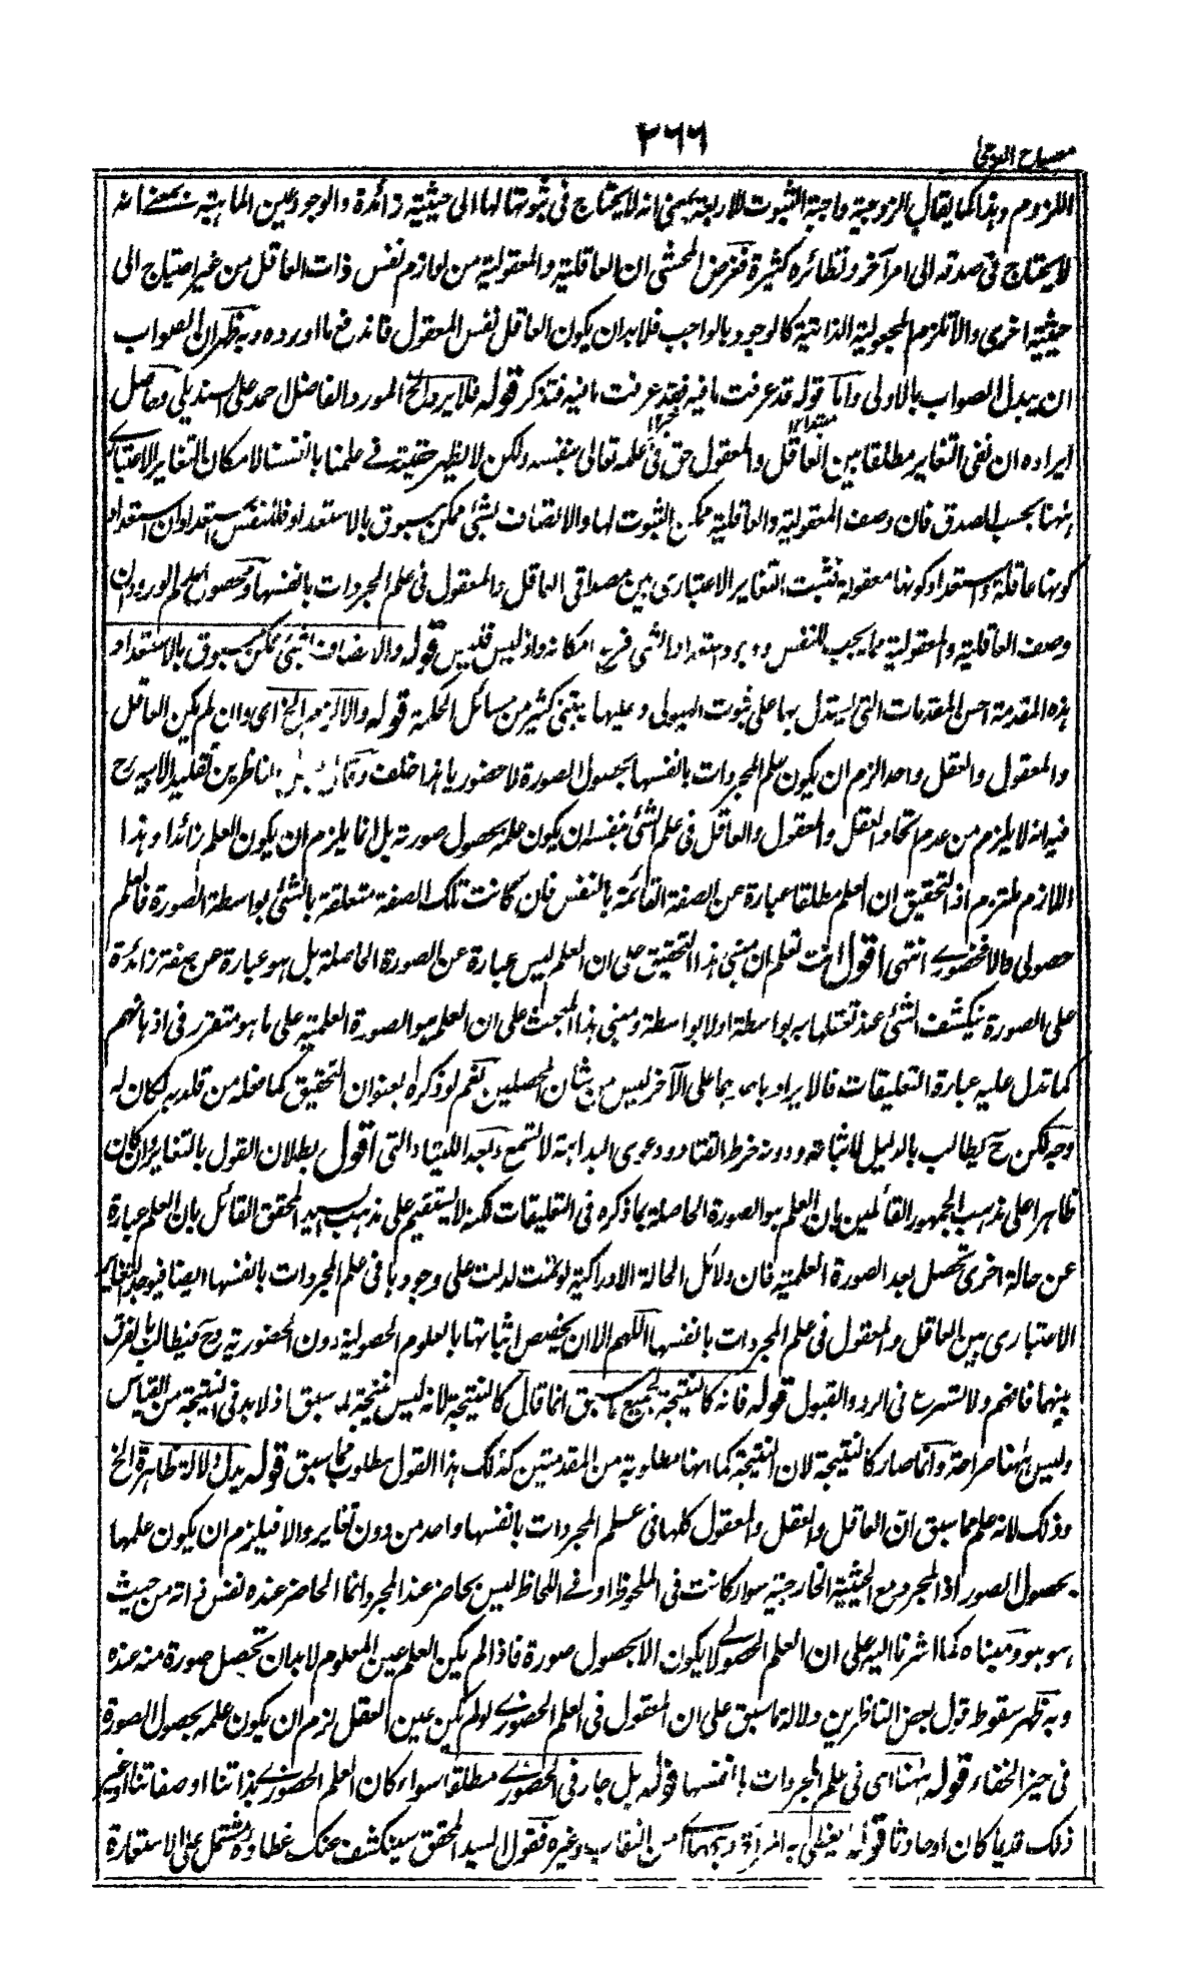 ٢٦٦
مصباح الدجى
اللزوم وهذا كما يقال الزوجية واجبة الثبوت للاربعة بمعنى انه لا يحتاج فى ثبوتها لها الى حيثية زائدة والوجود عين الماهية بمعنى انه
لا يحتاج فى صدقه الى امر آخر ونظائره كثيرة فغرض المحشى ان العاقلية والمعقولية من لوازم نفس ذات العاقل من غير احتياج الى
حيثية اخرى والا تلزم المجعولية الذاتية كالوجود بالواجب فلابد ان يكون العاقل نفس المعقول فاندفع ما اورده وبه ظهر ان الصواب
ان يبدل الصواب بالاولى واما قوله قد عرفت ما فيه فقد عرفت ما فيه فتذكر قوله فلا يرد الخ المورد الفاضل احمد على السنديلى وحاصل
ايراده ان نفى التغاير مطلقا بين العاقل والمعقول حق فى علمه تعالى بنفسه ولكن لا يظهر حقيته فى علمنا بانفسنا لامكان التغاير الاعتبارى
ههنا بحسب المصدق فان وصف المعقولية والعاقلية ممكن الثبوت لها والاتصاف بشئ ممكن مسبوق بالاستعداد فللنفس استعدادان استعداد
كونها عاقلة واستعداد كونها معقولة فثبت التغاير الاعتبارى بين مصداقى العاقل والمعقول فى علم المجردات بانفسها ومحصول عدم الورود ان
وصف العاقلية والمعقولية مما يجب للنفس واستعداد الشئ فرع امكانه واذ ليس فليس قوله والاتصاف بشئ ممكن مسبوق بالاستعداد
هذه المقدمة احسن المقدمات التى يستدل بها على ثبوت الهيولى وعليها يبتنى كثير من مسائل الحكمة قوله والا لزم الخ اى وان لم يكن العاقل
والمعقول والعقل واحد الزم ان يكون علم المجردات بانفسها بحصول الصورة لا حضوريا هذا خلف وقال بعض الناظرين تقليدا لابيه رح
فيه انه لا يلزم من عدم اتحاد العقل والمعقول والعاقل فى علم الشئ بنفسه ان يكون علمه بحصول صورته بل انما يلزم ان يكون العلم زائدا وهذا
اللازم ملتزم اذ التحقيق ان العلم مطلقا عبارة عن الصفة القائمة بالنفس فان كانت تلك الصفة متعلقة بالشئ بواسطة الصورة فالعلم
حصولى والا فحضورى انتهى اقول انت تعلم ان مبنى هذا التحقيق على ان العلم ليس عبارة عن الصورة الحاصلة بل هو عبارة عن صفة زائدة
على الصورة ينكشف الشئ عند تعلقها به بواسطة او لا بواسطة ومبنى هذا المبحث على ان العلم هو الصورة العلمية على ما هو متقرر فى اذهانهم
كما تدل عليه عبارة التعليقات فالايراد باحدهما على الآخر ليس من شان المحصلين نعم لو ذكره بعنوان التحقيق كما فعله من قلد به لكان له
وجه لكن ح يطالب بالدليل لاثباته ودونه خرط القتاد ودعوى البداهة لا تسمع وبعد اللتيا والتى اقول بطلان القول بالتغاير وان كان
ظاهرا على مذهب الجمهور القائلين بان العلم هو الصورة الحاصلة بما ذكره فى التعليقات لكنه لا يستقيم على مذهب السيد المحقق القائل بان العلم عبارة
عن حالة اخرى تحصل بعد الصورة العلمية فان دلائل الحالة الادراكية لو تمت لدلت على وجودها فى علم المجردات بانفسها ايضا فيوجد التغاير
الاعتبارى بين العاقل والمعقول فى علم المجردات بانفسها اللهم الا ان يخصص اثباتها بالعلوم الحصولية دون الحضورية وح فيطالب بالفرق
بينهما فافهم ولا تتسرع فى الرد والقبول قوله فانه كالنتيجة لجميع ما سبق انما قال كالنتيجة لانه ليس نتيجة لما سبق اذ لابد فى النتيجة من القياس
وليس ههنا صراحة وانما صار كالنتيجة لان النتيجة كما انها مطلوبة من المقدمتين كذلك هذا القول مطلوب مما سبق قوله يدل دلالة ظاهرة الخ
وذلك لانه علم مما سبق ان العاقل والعقل والمعقول كلها فى علم المجردات بانفسها واحد من دون تغاير والا فيلزم ان يكون علمها
بحصول الصور اذ المجرد مع الحيثية الخارجية سواء كانت فى الملحوظ او فى اللحاظ ليس بحاضر عند المجرد انما الحاضر عنده نفس ذاته من حيث
هو هو ومبناه كما اشرنا اليه على ان العلم الحصولى لا يكون الا بحصول صورة فاذا لم يكن العلم عين المعلوم لابد ان تحصل صورة منه عنده
وبه ظهر سقوط قول بعض الناظرين دلالة ما سبق على ان المعقول فى العلم الحضورى لو لم يكن عين العقل لزم ان يكون علمه بحصول الصورة
فى حيز الخفاء قوله ههنا اى فى علم المجردات بانفسها قوله بل جار فى الحضورى مطلقا سواء كان العلم الحضورى بذاتنا او صفاتنا او غير
ذلك قديما كان او حادثا قوله يغطى به المرأة وجهها من النقاب وغيره فقول السيد المحقق سينكشف عنك غطاؤه مشتمل على الاستعارة